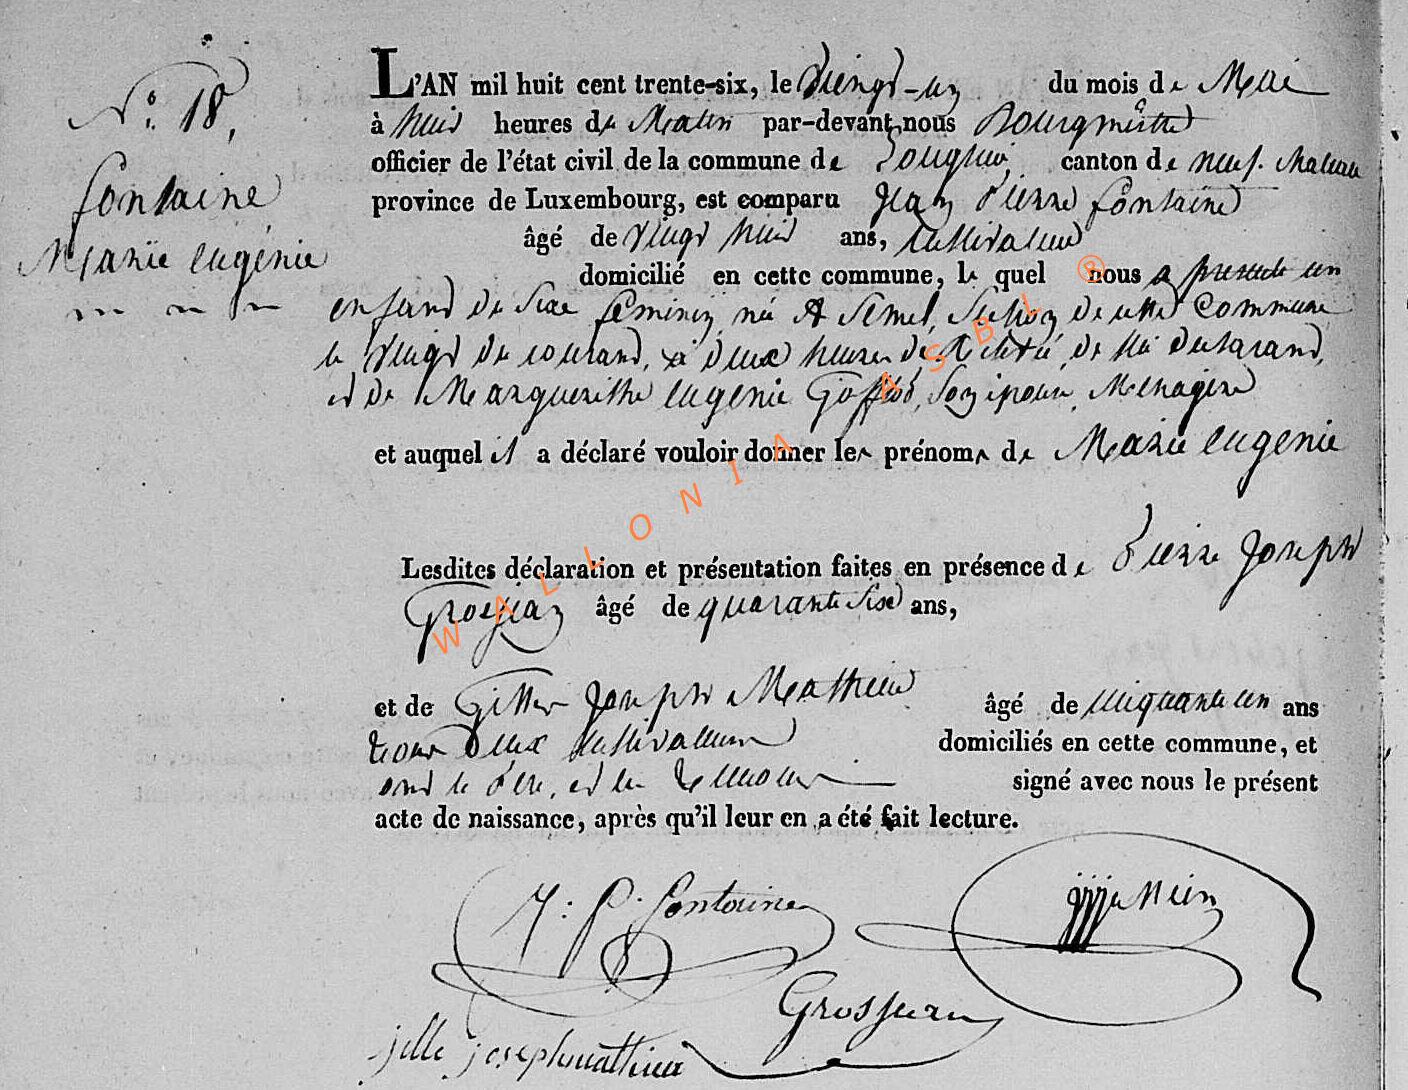 N°. 18.
Fontaine
Marie Eugénie
L'AN mil huit cent trente-six, le Vingt-un du mois de Mai
à huit heures du Matin par-devant nous Bourgmestre
officier de l'état civil de la commune de canton de neuf. chateau
province de Luxembourg, est comparu Jean Pierre Fontaine
âgé de vingt huit ans, cultivateur
domicilié en cette commune, le quel nous a presenté un
enfant de Sexe feminin, né A Semel, Section de cette Commune
le vingt du courant, à deux heures de de lui declarant,
et de Marguerithe Eugenie Son épouse, Menagere
et auquel il a déclaré vouloir donner les prénoms de Marie Eugenie
Lesdites déclaration et présentation faites en présence de Pierre Joseph
Grosjean âgé de quarante Six ans,
et de Joseph Mathieu âgé de cinquante un ans
tous deux cultivateurs domiciliés en cette commune, et
ont le Père, et les temoins signé avec nous le présent
acte de naissance, après qu'il leur en a été fait lecture.
J: P. Fontaine
Grosjean
jille josephmathieu
WALLONIA ASBL ®